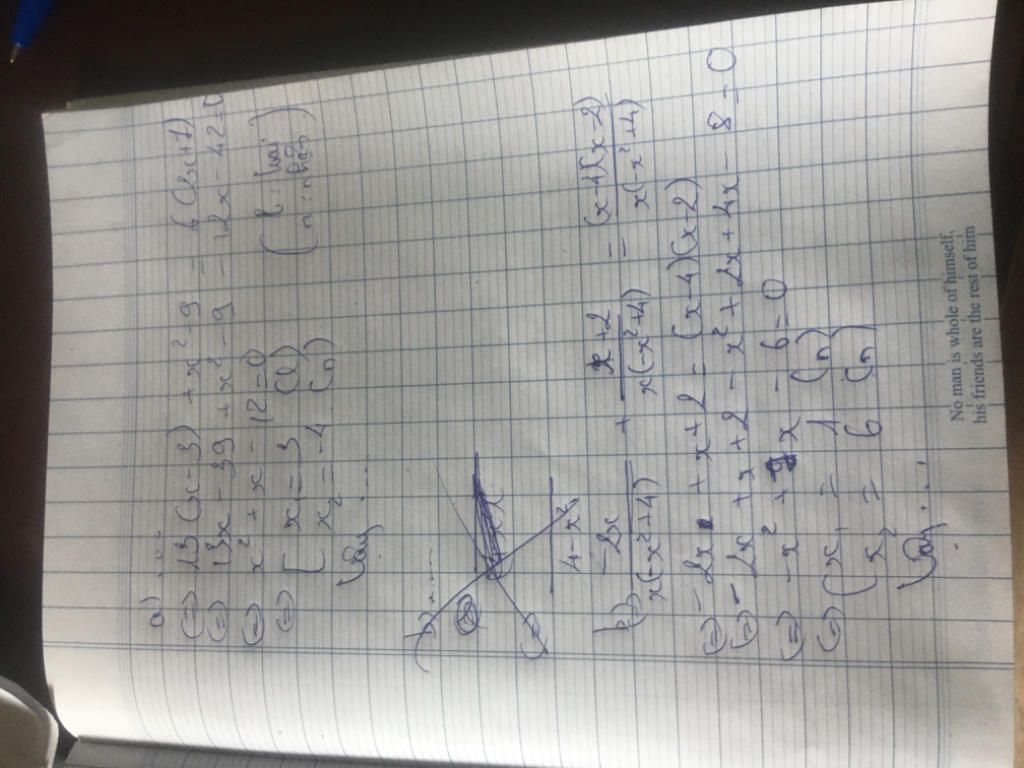 a) ...
(=) 13(x-3) + x² - 9 = 6(2x+7)
(=) 13x - 39 + x² - 9 - 12x - 42 = 0
(=) x² + x - 12 = 0
(=) [ x₁ = 3 (l)
x₂ = -4 (n)
(l: loại
n: nhận)
Vậy ....
b) .....
4 - x²
b) (=) -2x / x(-x²+4) + x+2 / x(-x²+4) = (x-4)(x-2) / x(-x²+4)
(=) -2x + x + 2 = (x-4)(x-2)
(=) -2x + x + 2 - x² + 2x + 4x - 8 = 0
(=) -x² + x - 6 = 0
(=) ( x₁ = 1 (n)
x₂ = 6 (n)
Vậy ...
No man is whole of himself,
his friends are the rest of him